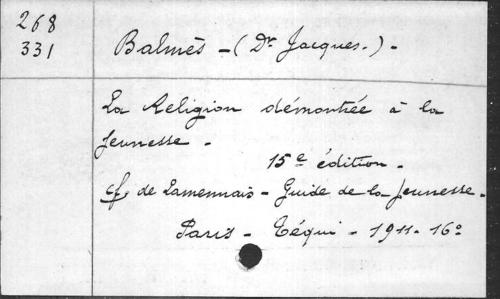 268
331
Balmès - (Dr Jacques.) -
La Religion démontrée à la
Jeunesse -
15e édition -
cf de Lamennais - Guide de la Jeunesse -
Paris - Téqui - 1911 - 16°